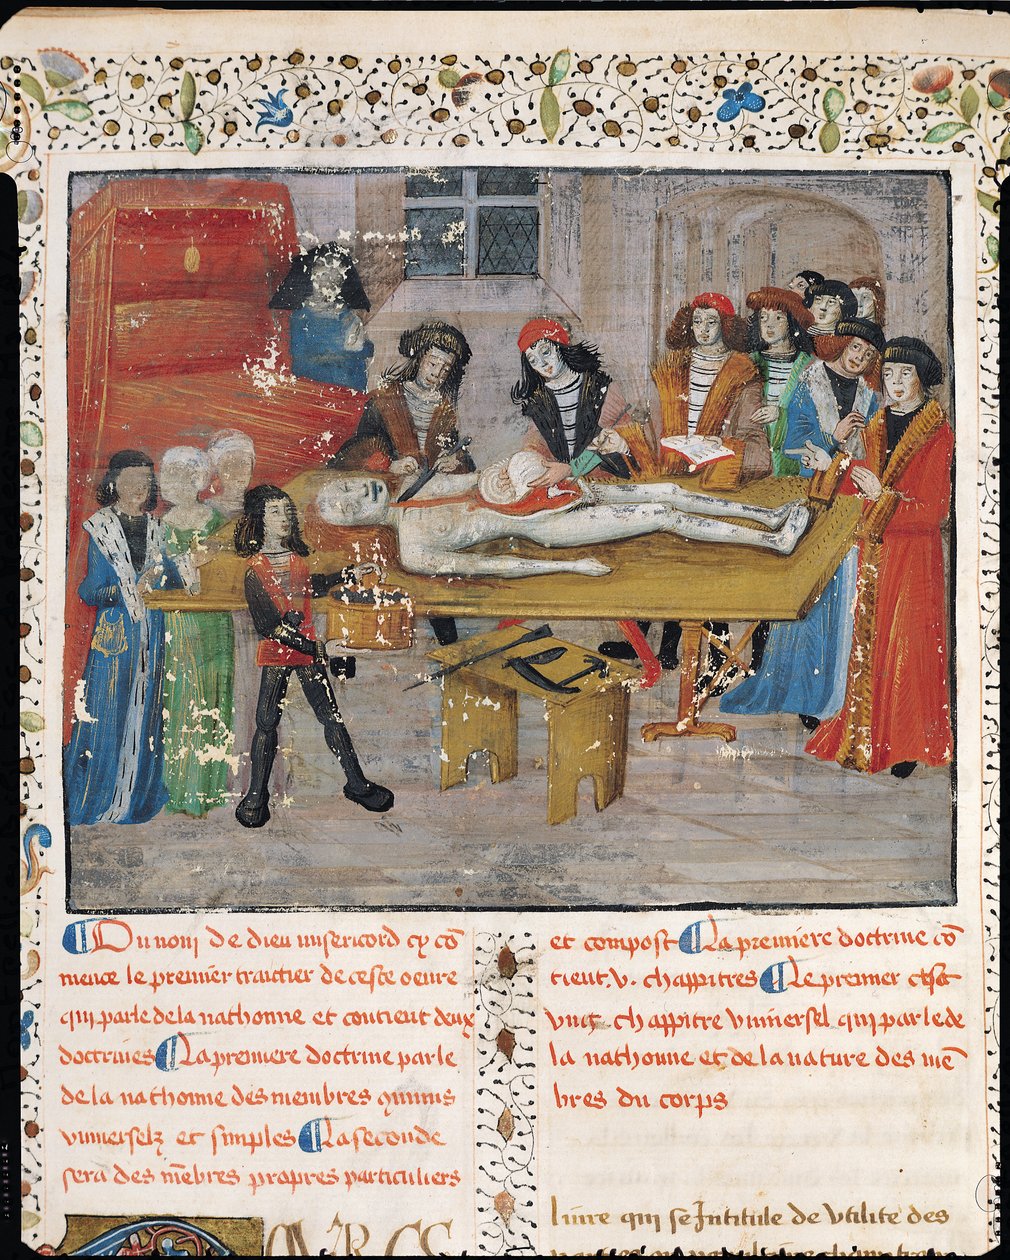 Du nom de dieu misericord cy cõ
mence le premier traictier de ceste oeuure
qui parle de la nathomie et contient deux
doctrines La premiere doctrine parle
de la nathomie des membres
vniuerselz et simples La seconde
sera des mẽbres propres particuliers
et compost La premiere doctrine cõ
tient .v. chappitres Le premier est
vng chappitre vniuersel qui parle de
la nathomie et de la nature des mẽ
bres du corps
liure qui se Intitule de vtilite des